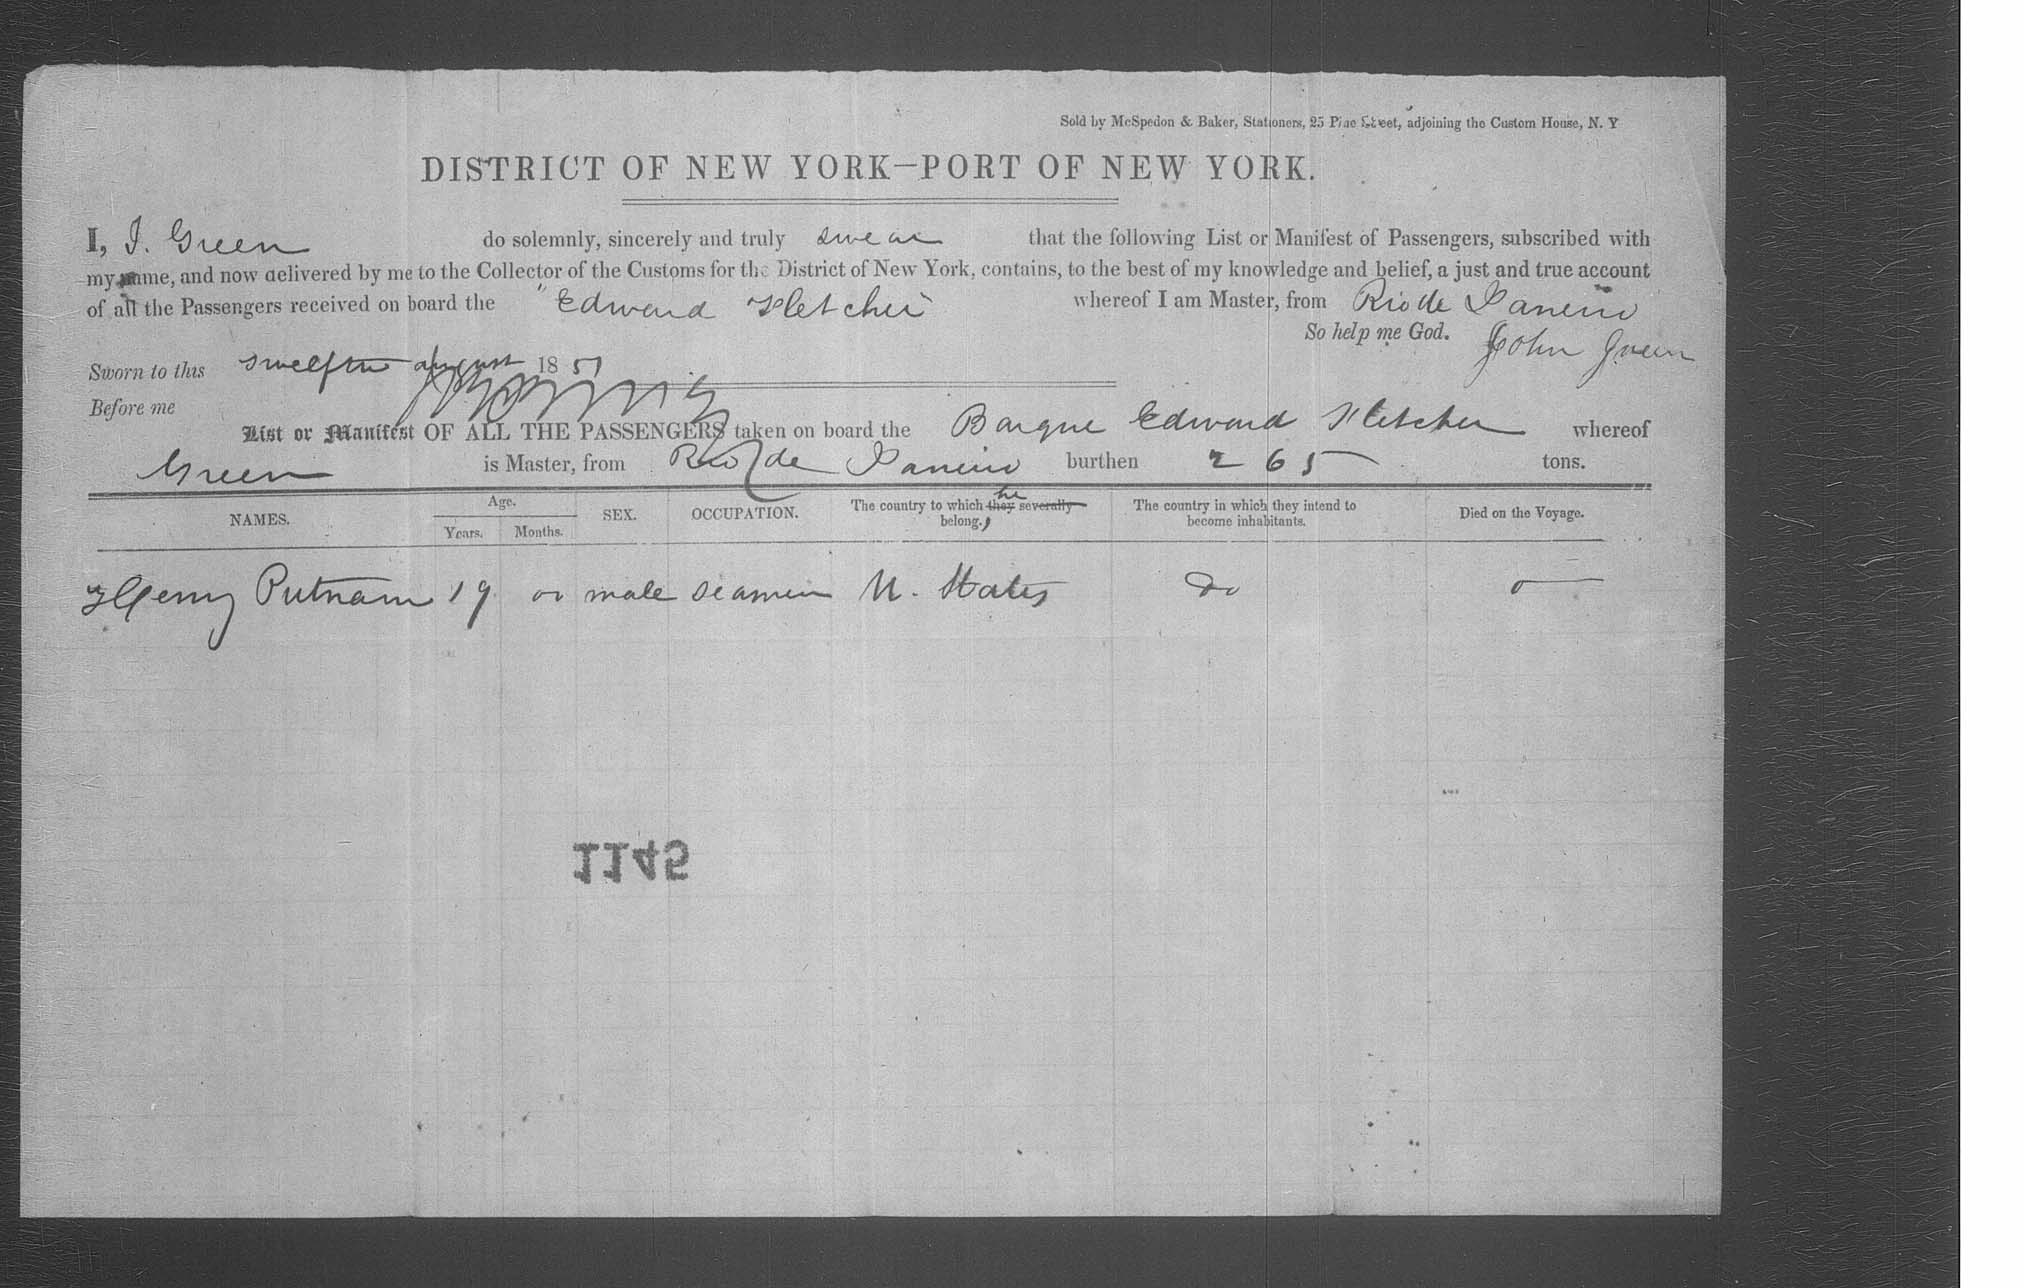 Sold by McSpedon & Baker, Stationers, 25 Pine Street, adjoining the Custom House, N. Y
DISTRICT OF NEW YORK—PORT OF NEW YORK.
I, J. Green do solemnly, sincerely and truly swear that the following List or Manifest of Passengers, subscribed with
my name, and now delivered by me to the Collector of the Customs for the District of New York, contains, to the best of my knowledge and belief, a just and true account
of all the Passengers received on board the "Edward Fletcher" whereof I am Master, from Rio de Janeiro
So help me God. John Green
Sworn to this twelfth august 1851
Before me
List or Manifest OF ALL THE PASSENGERS taken on board the Barque Edward Fletcher whereof
Green is Master, from Rio de Janeiro burthen 265 tons.
NAMES. Age. Years. Months. SEX. OCCUPATION. The country to which they he severally belong. The country in which they intend to become inhabitants. Died on the Voyage.
Henry Putnam 19 00 male seamen U. States Do 0
1145